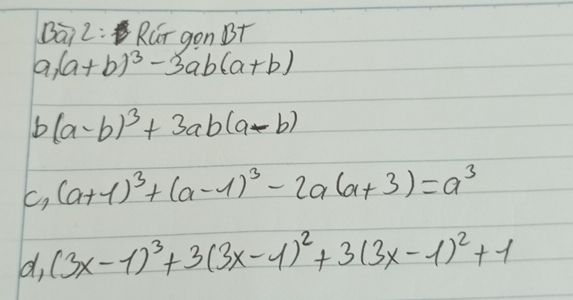 Bài 2: Rút gọn BT
a, (a+b)³ - 3ab(a+b)
b (a-b)³ + 3ab(a-b)
c, (a+1)³ + (a-1)³ - 2a(a+3) = a³
d, (3x-1)³ + 3(3x-1)² + 3(3x-1)² + 1